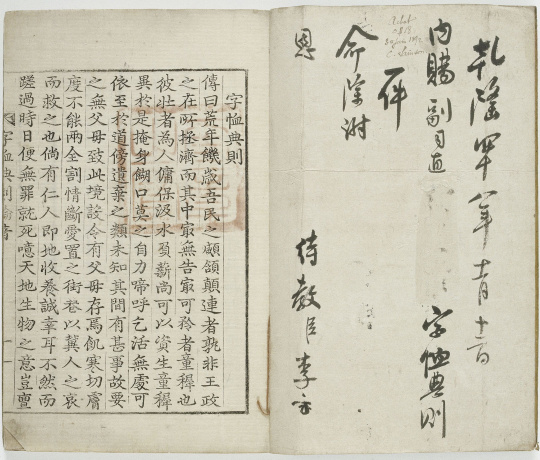 乾隆四十八年十一月
內賜副司直 字恤典則
一件
命除謝
恩
待教臣李
字恤典則
傳曰荒年饑歲吾民之顑頷顛連者孰非王政
之在所拯濟而其中最無告最可矜者童穉也
彼壯者為人傭保汲水負薪尚可以資生童穉
異於是掩身餬口莫之自力啼呼乞活無處可
依至於道傍遺棄之類未知其間有甚事故要
之無父母致此境設令有父母存焉飢寒切膚
度不能兩全割情斷愛置之街巷以冀人之哀
而救之也倘有仁人即地收養誠幸耳不然而
蹉過時日便無罪就死噫天地生物之意豈亶
字恤典則綸音 一